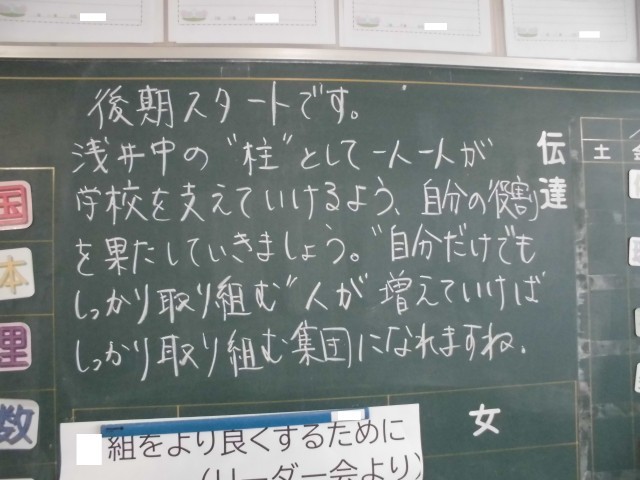 後期スタートです。
浅井中の"柱"として一人一人が
学校を支えていけるよう、自分の役割
を果たしていきましょう。"自分だけでも
しっかり取り組む"人が増えていけば
しっかり取り組む集団になれますね.
伝達
土
国
本
理
数
女
組をより良くするために
(リーダー会より)